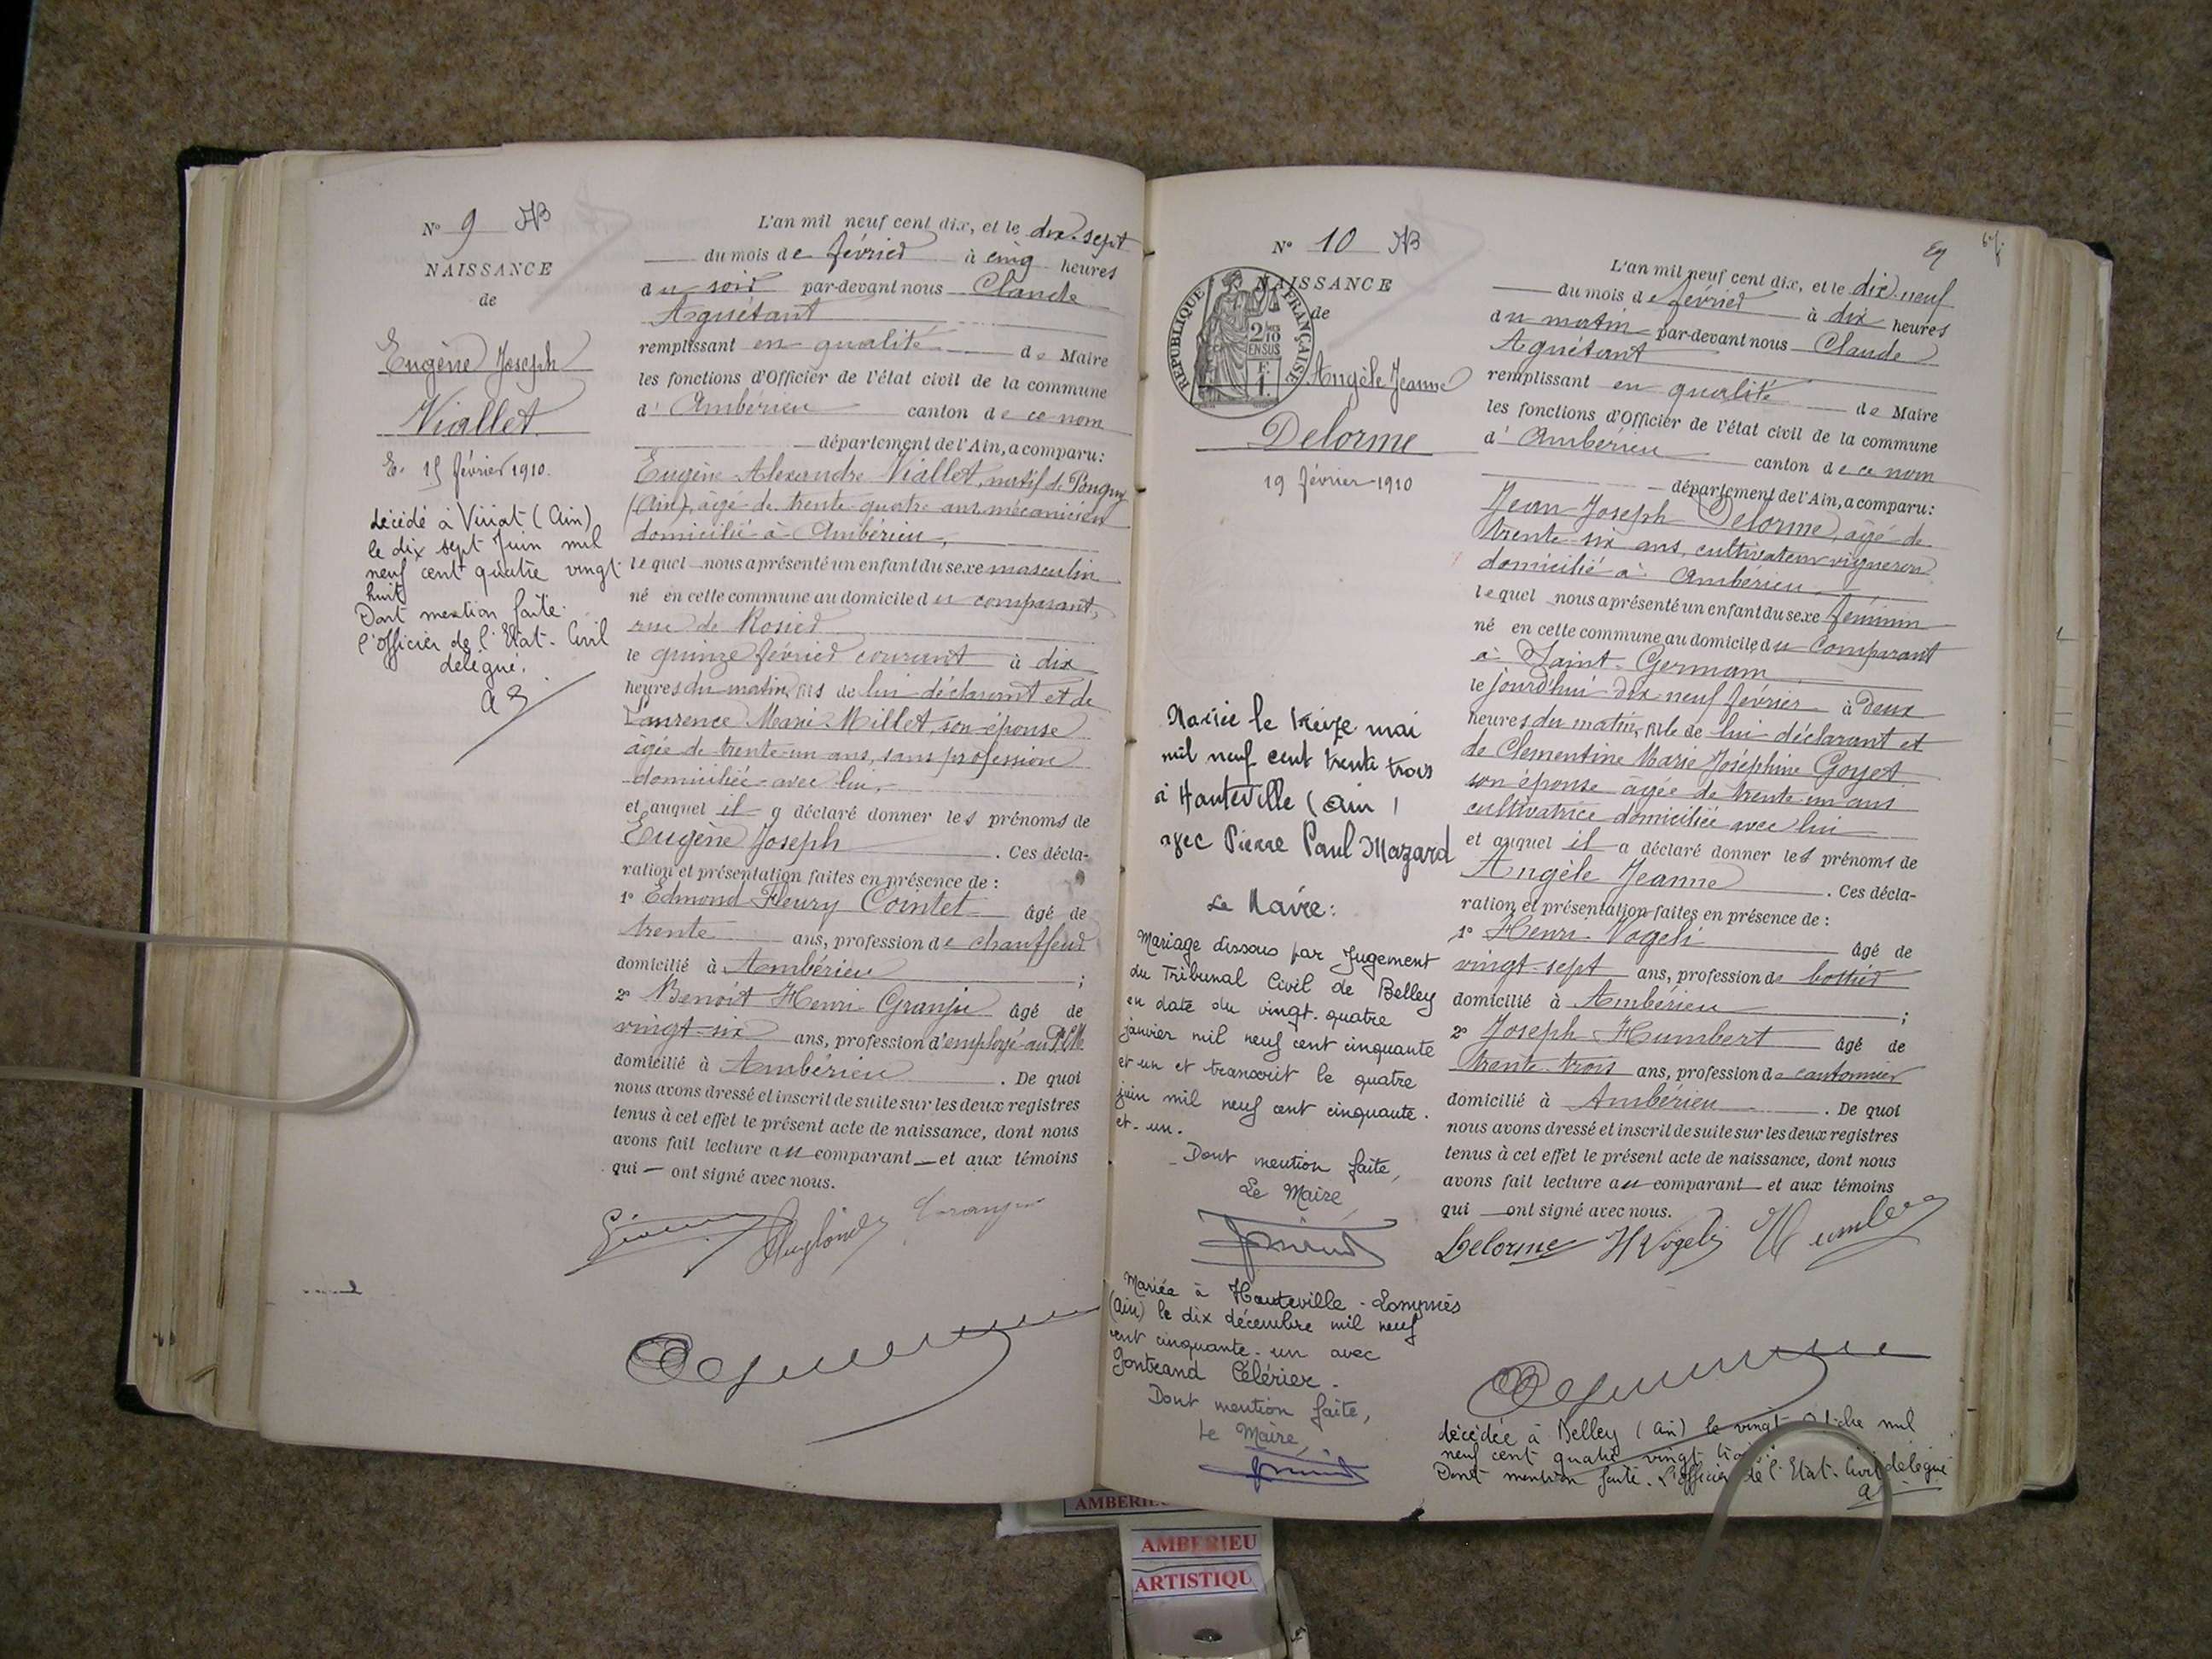 N° 9 NB
NAISSANCE
de
Eugène Joseph
Viallet
Le 15 février 1910.
décédé à Viriat (Ain)
le dix sept Juin mil
neuf cent quatre vingt
huit
Dont mention faite.
l'Officier de l'Etat-Civil
délégué.
L'an mil neuf cent dix, et le dix-sept
du mois de février à cinq heures
du soir par-devant nous Claude
Aguétant
remplissant en qualité de Maire
les fonctions d'Officier de l'état civil de la commune
d'Ambérieu canton de ce nom
département de l'Ain, a comparu:
Eugène Alexandre Viallet, natif de Pougny
(Ain), âgé de trente-quatre ans, mécanicien
domicilié à Ambérieu,
lequel nous a présenté un enfant du sexe masculin
né en cette commune au domicile du comparant,
rue de Rosier
le quinze février courant à dix
heures du matin, fils de lui déclarant et de
Laurence Marie Millet, son épouse
âgée de trente-un ans, sans profession
domiciliée avec lui,
et auquel il a déclaré donner les prénoms de
Eugène Joseph . Ces décla-
ration et présentation faites en présence de :
1° Edmond Fleury Cointet âgé de
trente ans, profession de chauffeur
domicilié à Ambérieu ;
2° Benoît Henri Granju âgé de
vingt-six ans, profession d'employé au PLM
domicilié à Ambérieu . De quoi
nous avons dressé et inscrit de suite sur les deux registres
tenus à cet effet le présent acte de naissance, dont nous
avons fait lecture au comparant et aux témoins
qui ont signé avec nous.
N° 10 NB
NAISSANCE
de
RÉPUBLIQUE FRANÇAISE
2/10
EN SUS
Angèle Jeanne
Delorme
19 février 1910
Mariée le treize mai
mil neuf cent trente trois
à Hauteville (Ain)
avec Pierre Paul Mazard
Le Maire:
Mariage dissous par Jugement
du Tribunal Civil de Belley
en date du vingt-quatre
janvier mil neuf cent cinquante
et un et transcrit le quatre
juin mil neuf cent cinquante-
et-un.
Dont mention faite,
Le Maire
Mariée à Hauteville-Lompnès
(Ain) le dix décembre mil neuf
cent cinquante-un avec
Gontrand Célérier.
Dont mention faite,
Le Maire,
L'an mil neuf cent dix, et le dix-neuf
du mois de février à dix heures
du matin par-devant nous Claude
Aguétant
remplissant en qualité de Maire
les fonctions d'Officier de l'état civil de la commune
d'Ambérieu canton de ce nom
département de l'Ain, a comparu:
Jean Joseph Delorme, âgé de
trente-six ans, cultivateur vigneron
domicilié à Ambérieu
lequel nous a présenté un enfant du sexe féminin
né en cette commune au domicile du comparant
à Saint-Germain
le jourd'hui dix neuf février à deux
heures du matin, fille de lui déclarant et
de Clementine Marie Joséphine Goyet
son épouse âgée de trente-un ans
cultivatrice domiciliée avec lui
et auquel il a déclaré donner les prénoms de
Angèle Jeanne . Ces décla-
ration et présentation faites en présence de :
1° Henri Vogeli âgé de
vingt-sept ans, profession de bottier
domicilié à Ambérieu ;
2° Joseph Humbert âgé de
trente-trois ans, profession de cantonnier
domicilié à Ambérieu . De quoi
nous avons dressé et inscrit de suite sur les deux registres
tenus à cet effet le présent acte de naissance, dont nous
avons fait lecture au comparant et aux témoins
qui ont signé avec nous.
Delorme H Vogeli Humbert
décédée à Belley (Ain) le vingt mil
neuf cent quatre vingt
Dont mention faite. L'officier de l'Etat-Civil délégué
AMBERIEU
AMBERIEU
ARTISTIQU